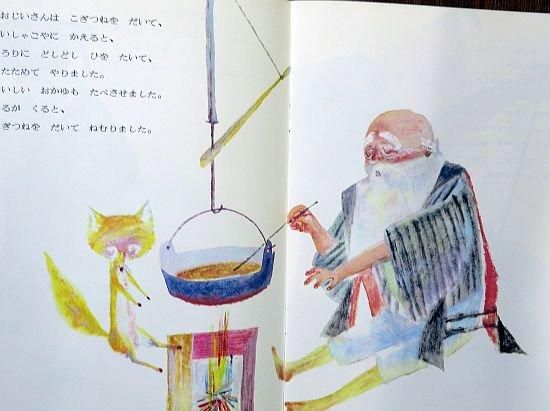 おじいさんは こぎつねを だいて、
いしゃごやに かえると、
ろりに どしどし ひを たいて、
たためて やりました。
いしい おかゆも たべさせました。
るが くると、
ぎつねを だいて ねむりました。